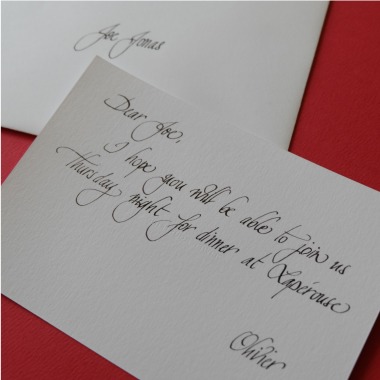 Joe Jonas
Dear Joe,
I hope you will be able to join us
Thursday night for dinner at Lapérouse
Olivier